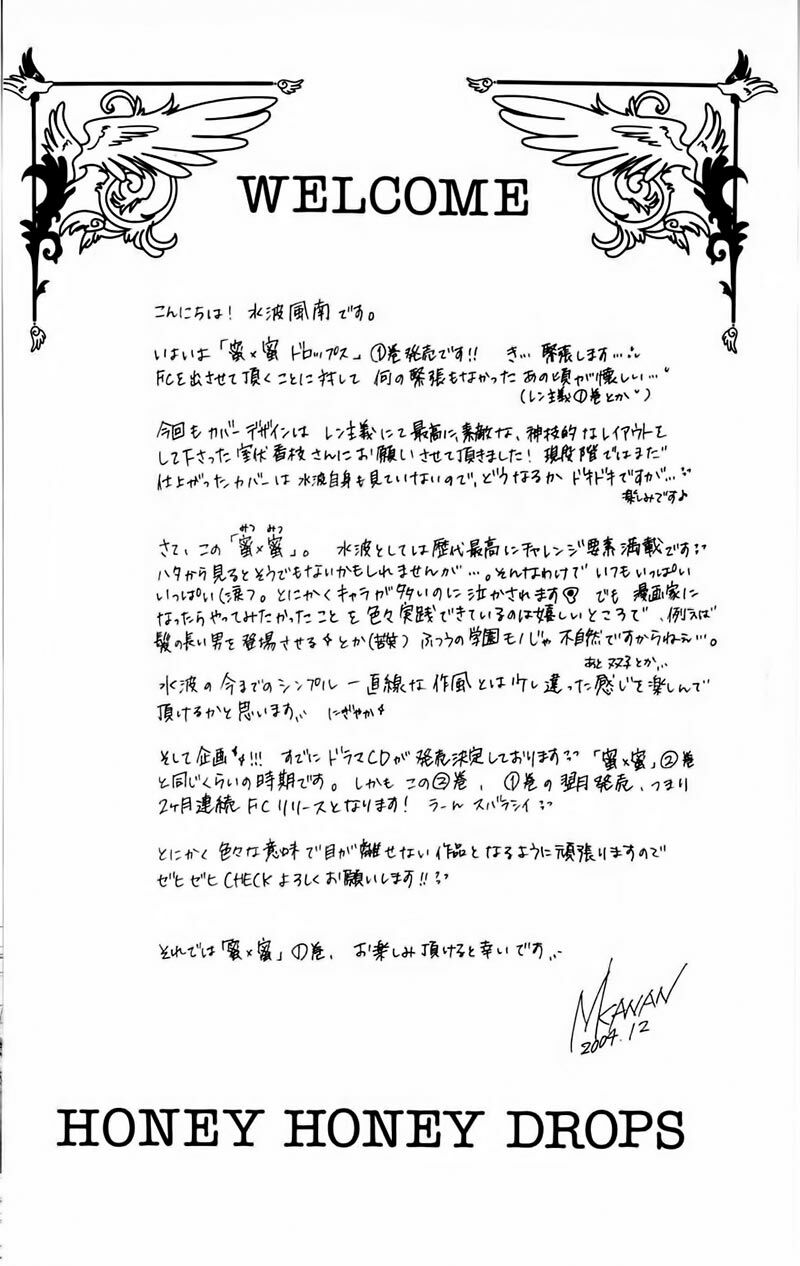 WELCOME
こんにちは! 水波風南です。
いよいよ「蜜×蜜ドロップス」①巻発売です!! き…緊張します…
FCを出させて頂くことに対して 何の緊張もなかったあの頃が懐しい…
(レン主義①巻とか)
今回もカバーデザインは レン主義にて最高に、素敵な、神技的なレイアウトを
して下さった室伏 枝さんにお願いさせて頂きました! 現段階ではまだ
仕上がったカバーは水波自身も見ていないので、どうなるか ドキドキですが…
楽しみです♪
みつ みつ
さて、この「蜜×蜜」。 水波としては歴代最高にチャレンジ要素満載です
ハタから見るとそうでもないかもしれませんが…。そんなわけで いつもいっぱい
いっぱい(涙)。とにかくキャラが多いのに泣かされます でも 漫画家に
なったらやってみたかったことを 色々実践できているのは嬉しいところで、例えば
髪の長い男を登場させる とか(苦笑) ふつうの学園モノじゃ 不自然ですからねぇ…。
あと 双子とか…
水波の今までのシンプル一直線な 作風とは少し違った感じを楽しんで
頂けるかと思います にぎやか
そして企画!!! すでにドラマCDが 発売決定しております 「蜜×蜜」②巻
と同じくらいの時期です。しかも この②巻、①巻の翌月発売、つまり
2ヶ月連続FCリリースとなります! うーん スバラシイ
とにかく色々な意味で目が離せない作品となるように頑張りますので
ゼヒゼヒCHECKよろしくお願いします!!
それでは「蜜×蜜」①巻、お楽しみ頂けると幸いです
MKANAN
2004.12
HONEY HONEY DROPS